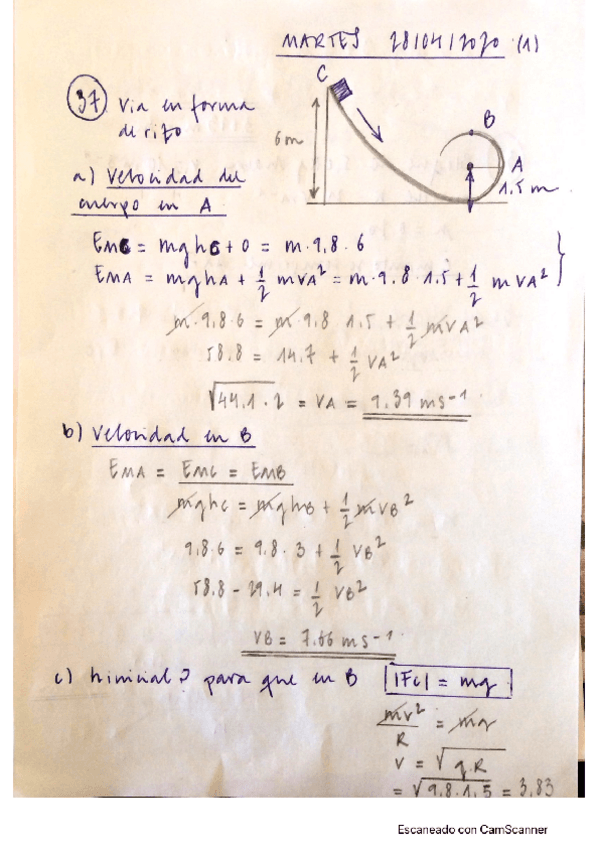 MARTES 28/04/2020 (1)
37 Via en forma
de rizo
C
B
6m
A
1.5 m.
a) Velocidad del
cuerpo en A
EMC = mghC + 0 = m·9.8·6
EMA = mghA + 1/2 mVA² = m·9.8·1.5 + 1/2 mVA²
m·9.8·6 = m·9.8·1.5 + 1/2 mVA²
58.8 = 14.7 + 1/2 VA²
√44.1·2 = VA = 9.39 ms⁻¹
b) Velocidad en B
EMA = EMC = EMB
mghC = mghB + 1/2 mVB²
9.8·6 = 9.8·3 + 1/2 VB²
58.8 - 29.4 = 1/2 VB²
VB = 7.66 ms⁻¹
c) hinicial? para que en B |Fc| = mg
mv²/R = mg
v = √g.R
= √9.8·1.5 = 3.83
Escaneado con CamScanner